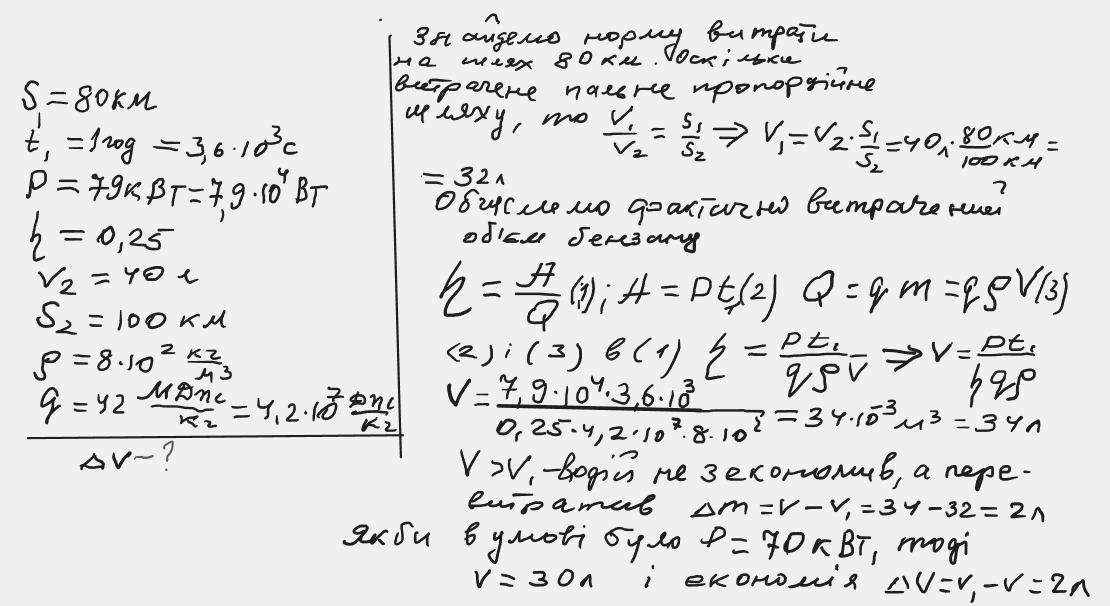 S₁ = 80 км
t₁ = 1 год = 3,6·10³ с
P = 79 кВт = 7,9·10⁴ Вт
η = 0,25
V₂ = 40 л
S₂ = 100 км
ρ = 8·10² кг/м³
q = 42 МДж/кг = 4,2·10⁷ Дж/кг
ΔV – ?
Знайдемо норму витрати
на шлях 80 км. Оскільки
витрачене пальне пропорційне
шляху, то V₁/V₂ = S₁/S₂ ⇒ V₁ = V₂·S₁/S₂ = 40л·80км/100км =
= 32л
Обчислимо фактично витрачений
об'єм бензину
η = A/Q (1); A = Pt₁(2) Q = qm = qρV(3)
(2) і (3) в (1) η = Pt₁/qρV ⇒ V = Pt₁/ηqρ
V = 7,9·10⁴·3,6·10³/0,25·4,2·10⁷·8·10² = 34·10⁻³м³ = 34л
V > V₁ – водій не зекономив, а пере-
витратив Δm = V – V₁ = 34 – 32 = 2л
Якби в умові було P = 70 кВт, тоді
V = 30л і економія ΔV = V₁ – V = 2л